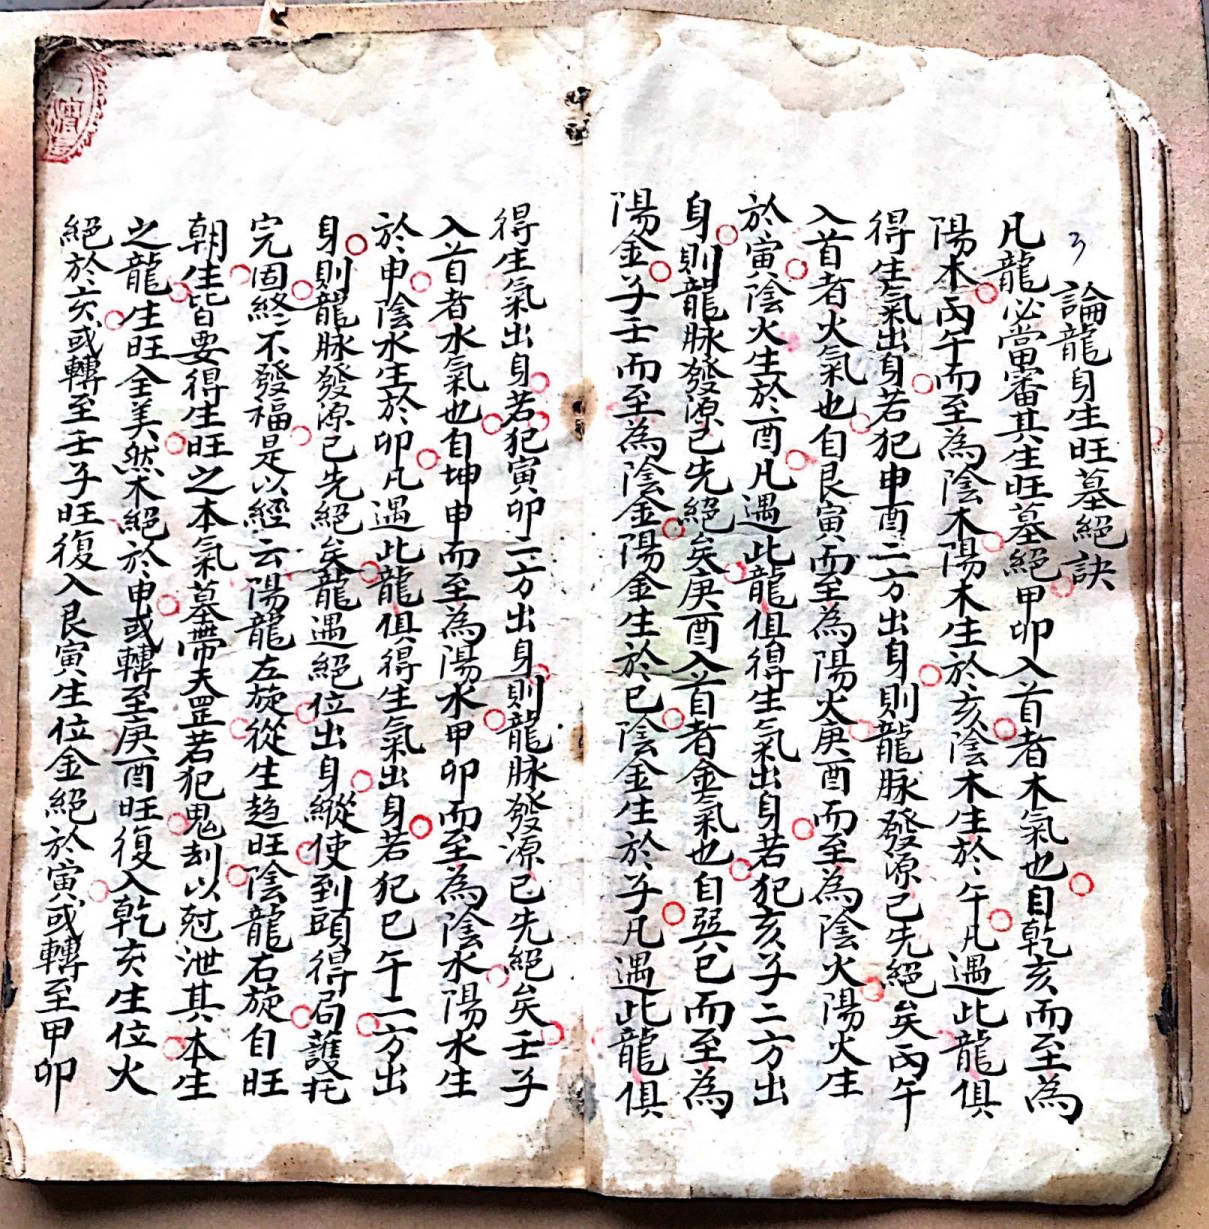 論龍身生旺墓絕訣
凡龍必當審其生旺墓絕甲卯入首者木氣也自乾亥而至為
陽木丙午而至為陰木陽木生於亥陰木生於午凡遇此龍俱
得生氣出身若犯申酉二方出身則龍脉發源已先絕矣丙午
入首者火氣也自艮寅而至為陽火庚酉而至為陰火陽火生
於寅陰火生於酉凡遇此龍俱得生氣出身若犯亥子二方出
身則龍脉發源已先絕矣庚酉入首者金氣也自巽巳而至為
陽金子壬而至為陰金陽金生於巳陰金生於子凡遇此龍俱
得生氣出身若犯寅卯二方出身則龍脉發源已先絕矣壬子
入首者水氣也自坤申而至為陽水甲卯而至為陰水陽水生
於申陰水生於卯凡遇此龍俱得生氣出身若犯巳午二方出
身則龍脉發源已先絕矣龍遇絕位出身縱使到頭得局護托
完固終不發福是以經云陽龍左旋從生趋旺陰龍右旋自旺
朝生皆要得生旺之本氣墓帶天罡若犯鬼刧以尅泄其本生
之龍生旺全美然木絕於申或轉至庚酉旺復入乾亥生位火
絕於亥或轉至壬子旺復入艮寅生位金絕於寅或轉至甲卯